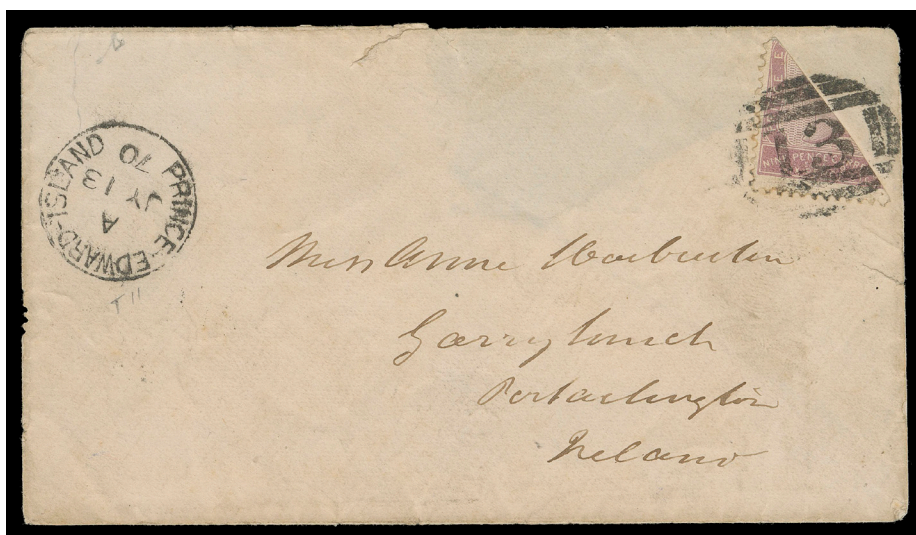 PRINCE-EDWARD-ISLAND
A
JY 13
70
13
NINE PENCE
Miss Anne Warburton
Garryhinch
Portarlington
Ireland